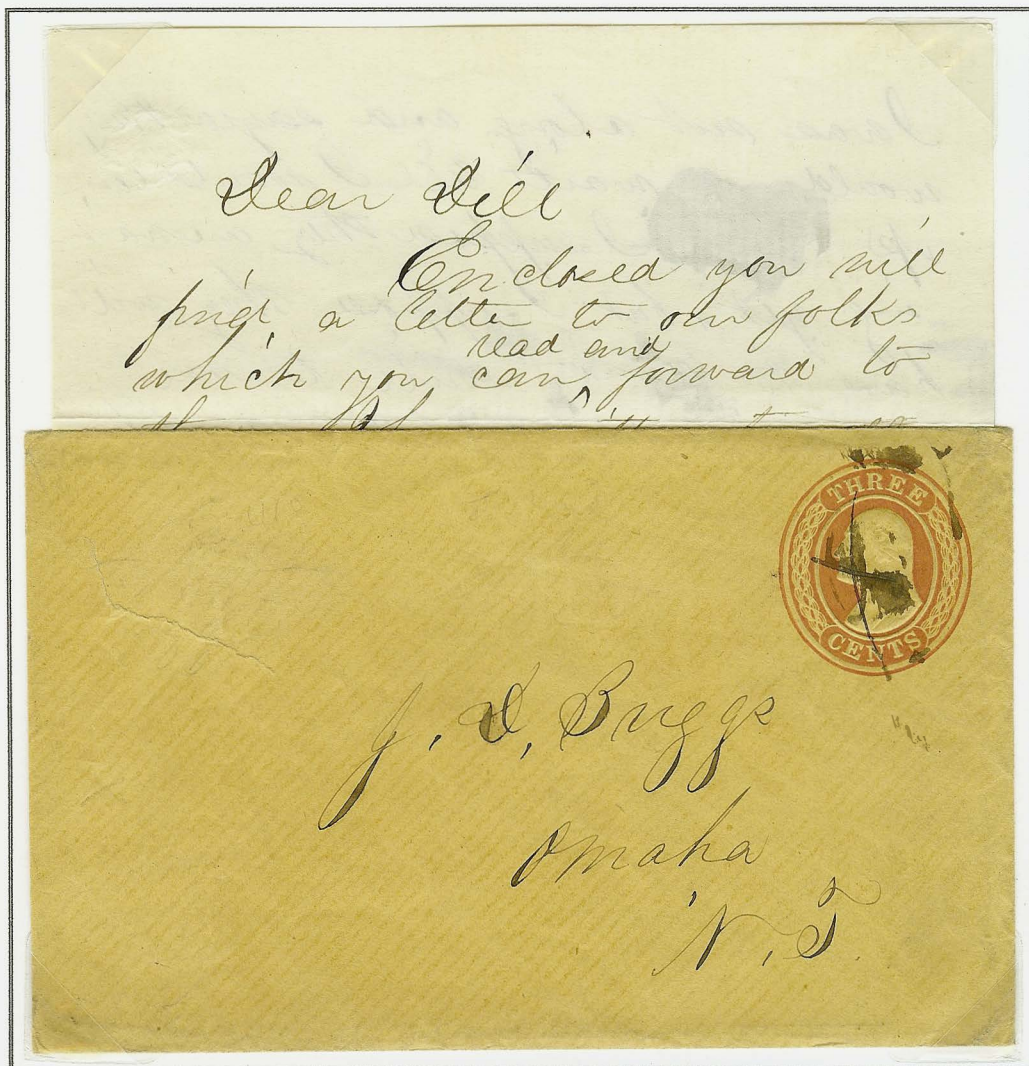 Dear Dill
Enclosed you will
find, a letter to our folks
read and
which you can, forward to
THREE
CENTS
J. D. Briggs
Omaha
N. T.